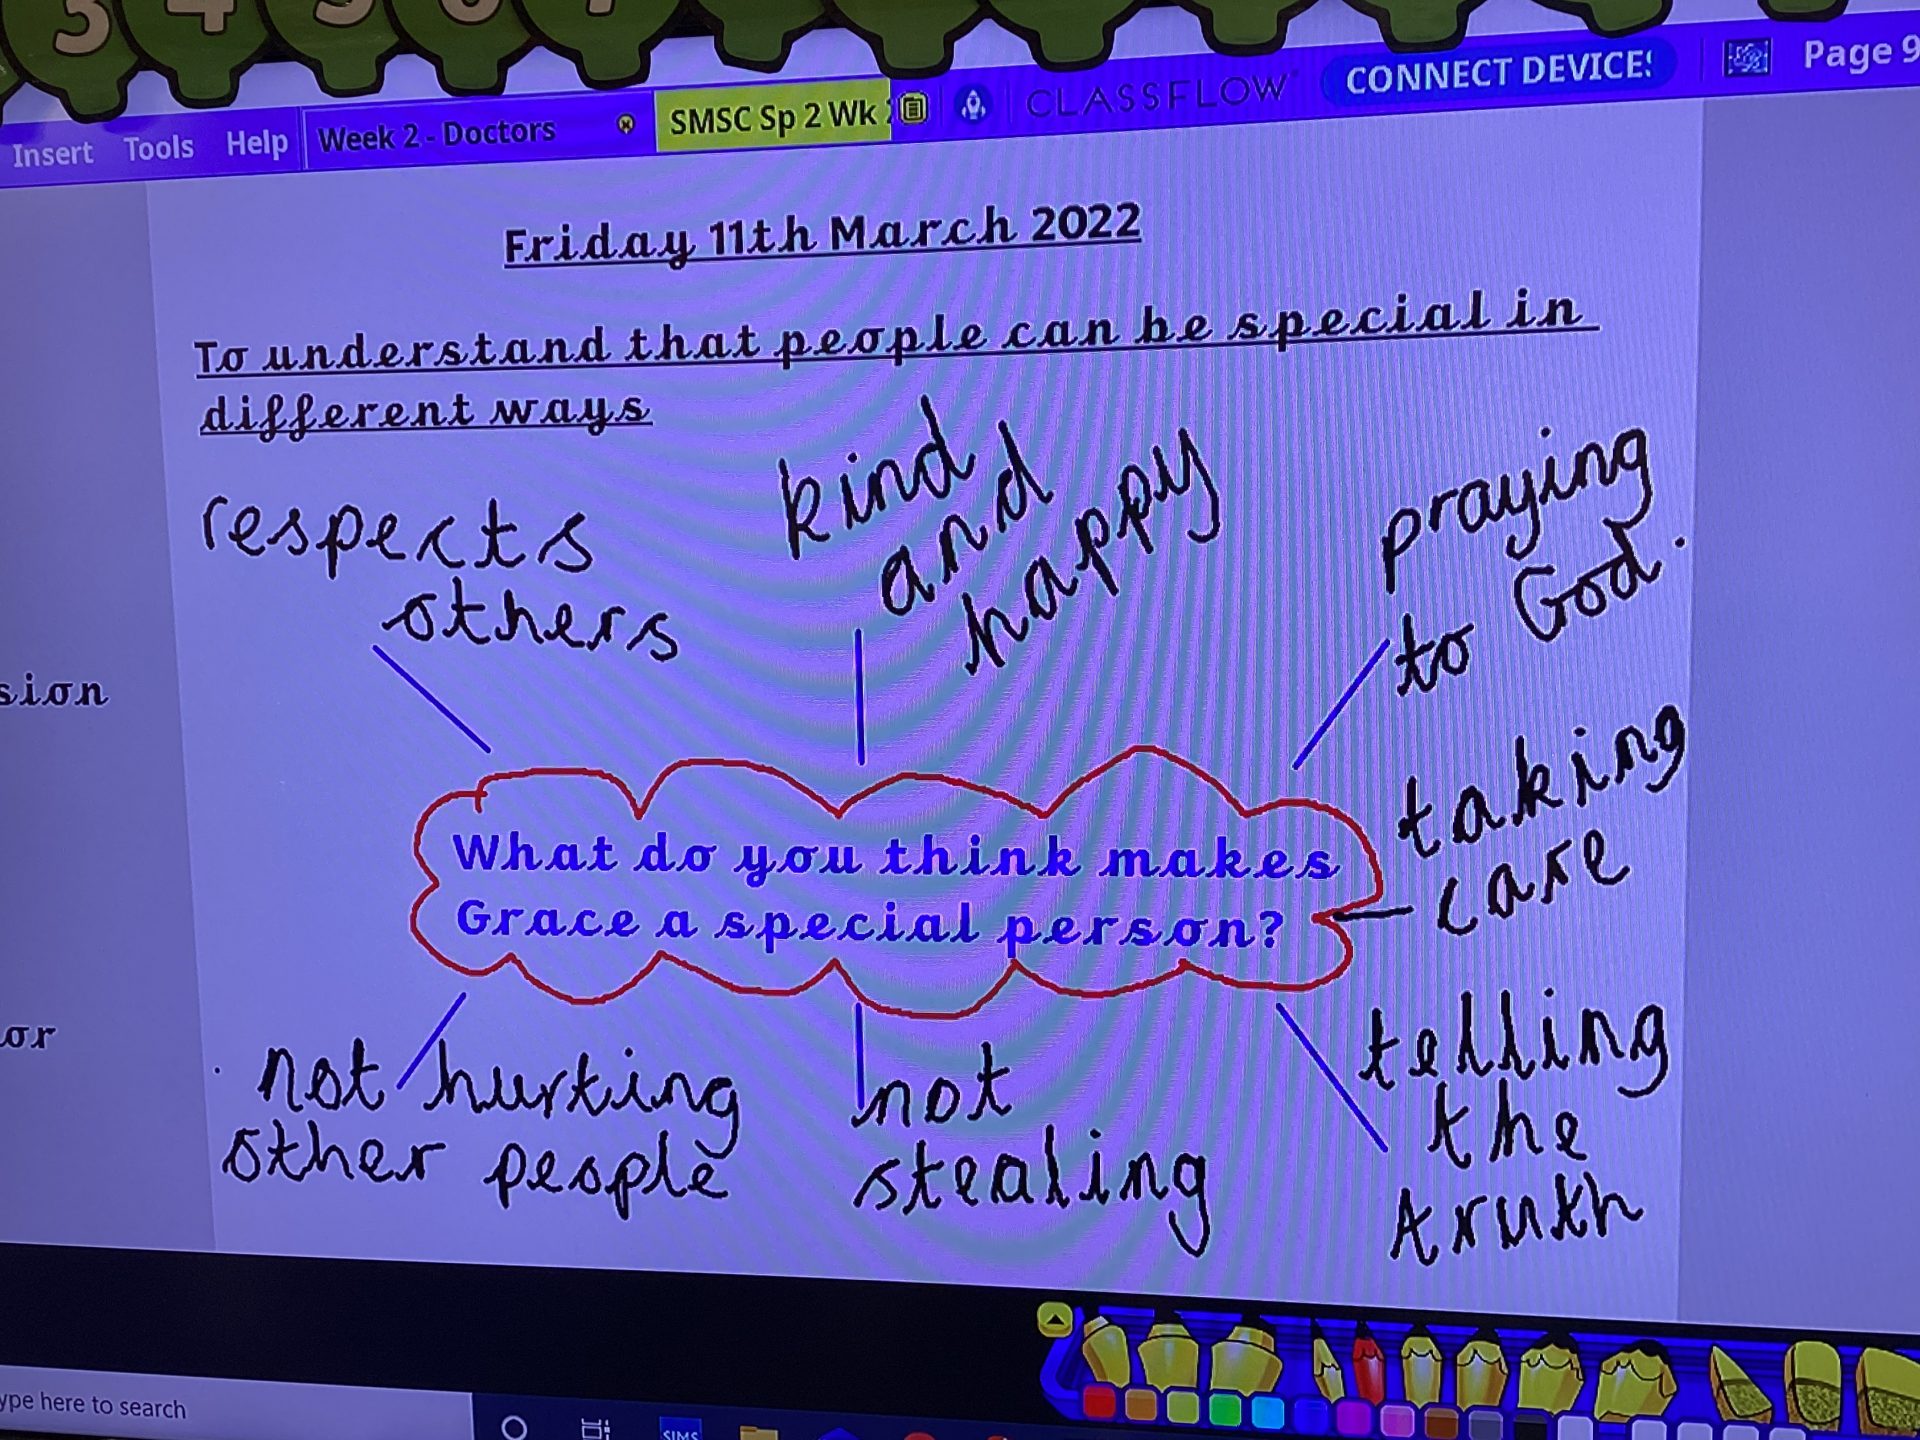 3 4 5 6 7
Insert Tools Help Week 2 - Doctors SMSC Sp 2 Wk CLASSFLOW CONNECT DEVICES Page 9
Friday 11th March 2022
To understand that people can be special in
different ways
respects
others
kind
and
happy
praying
to God.
taking
care
What do you think makes
Grace a special person?
sion
or
not hurting
other people
not
stealing
telling
the
truth
ype here to search
SIMS